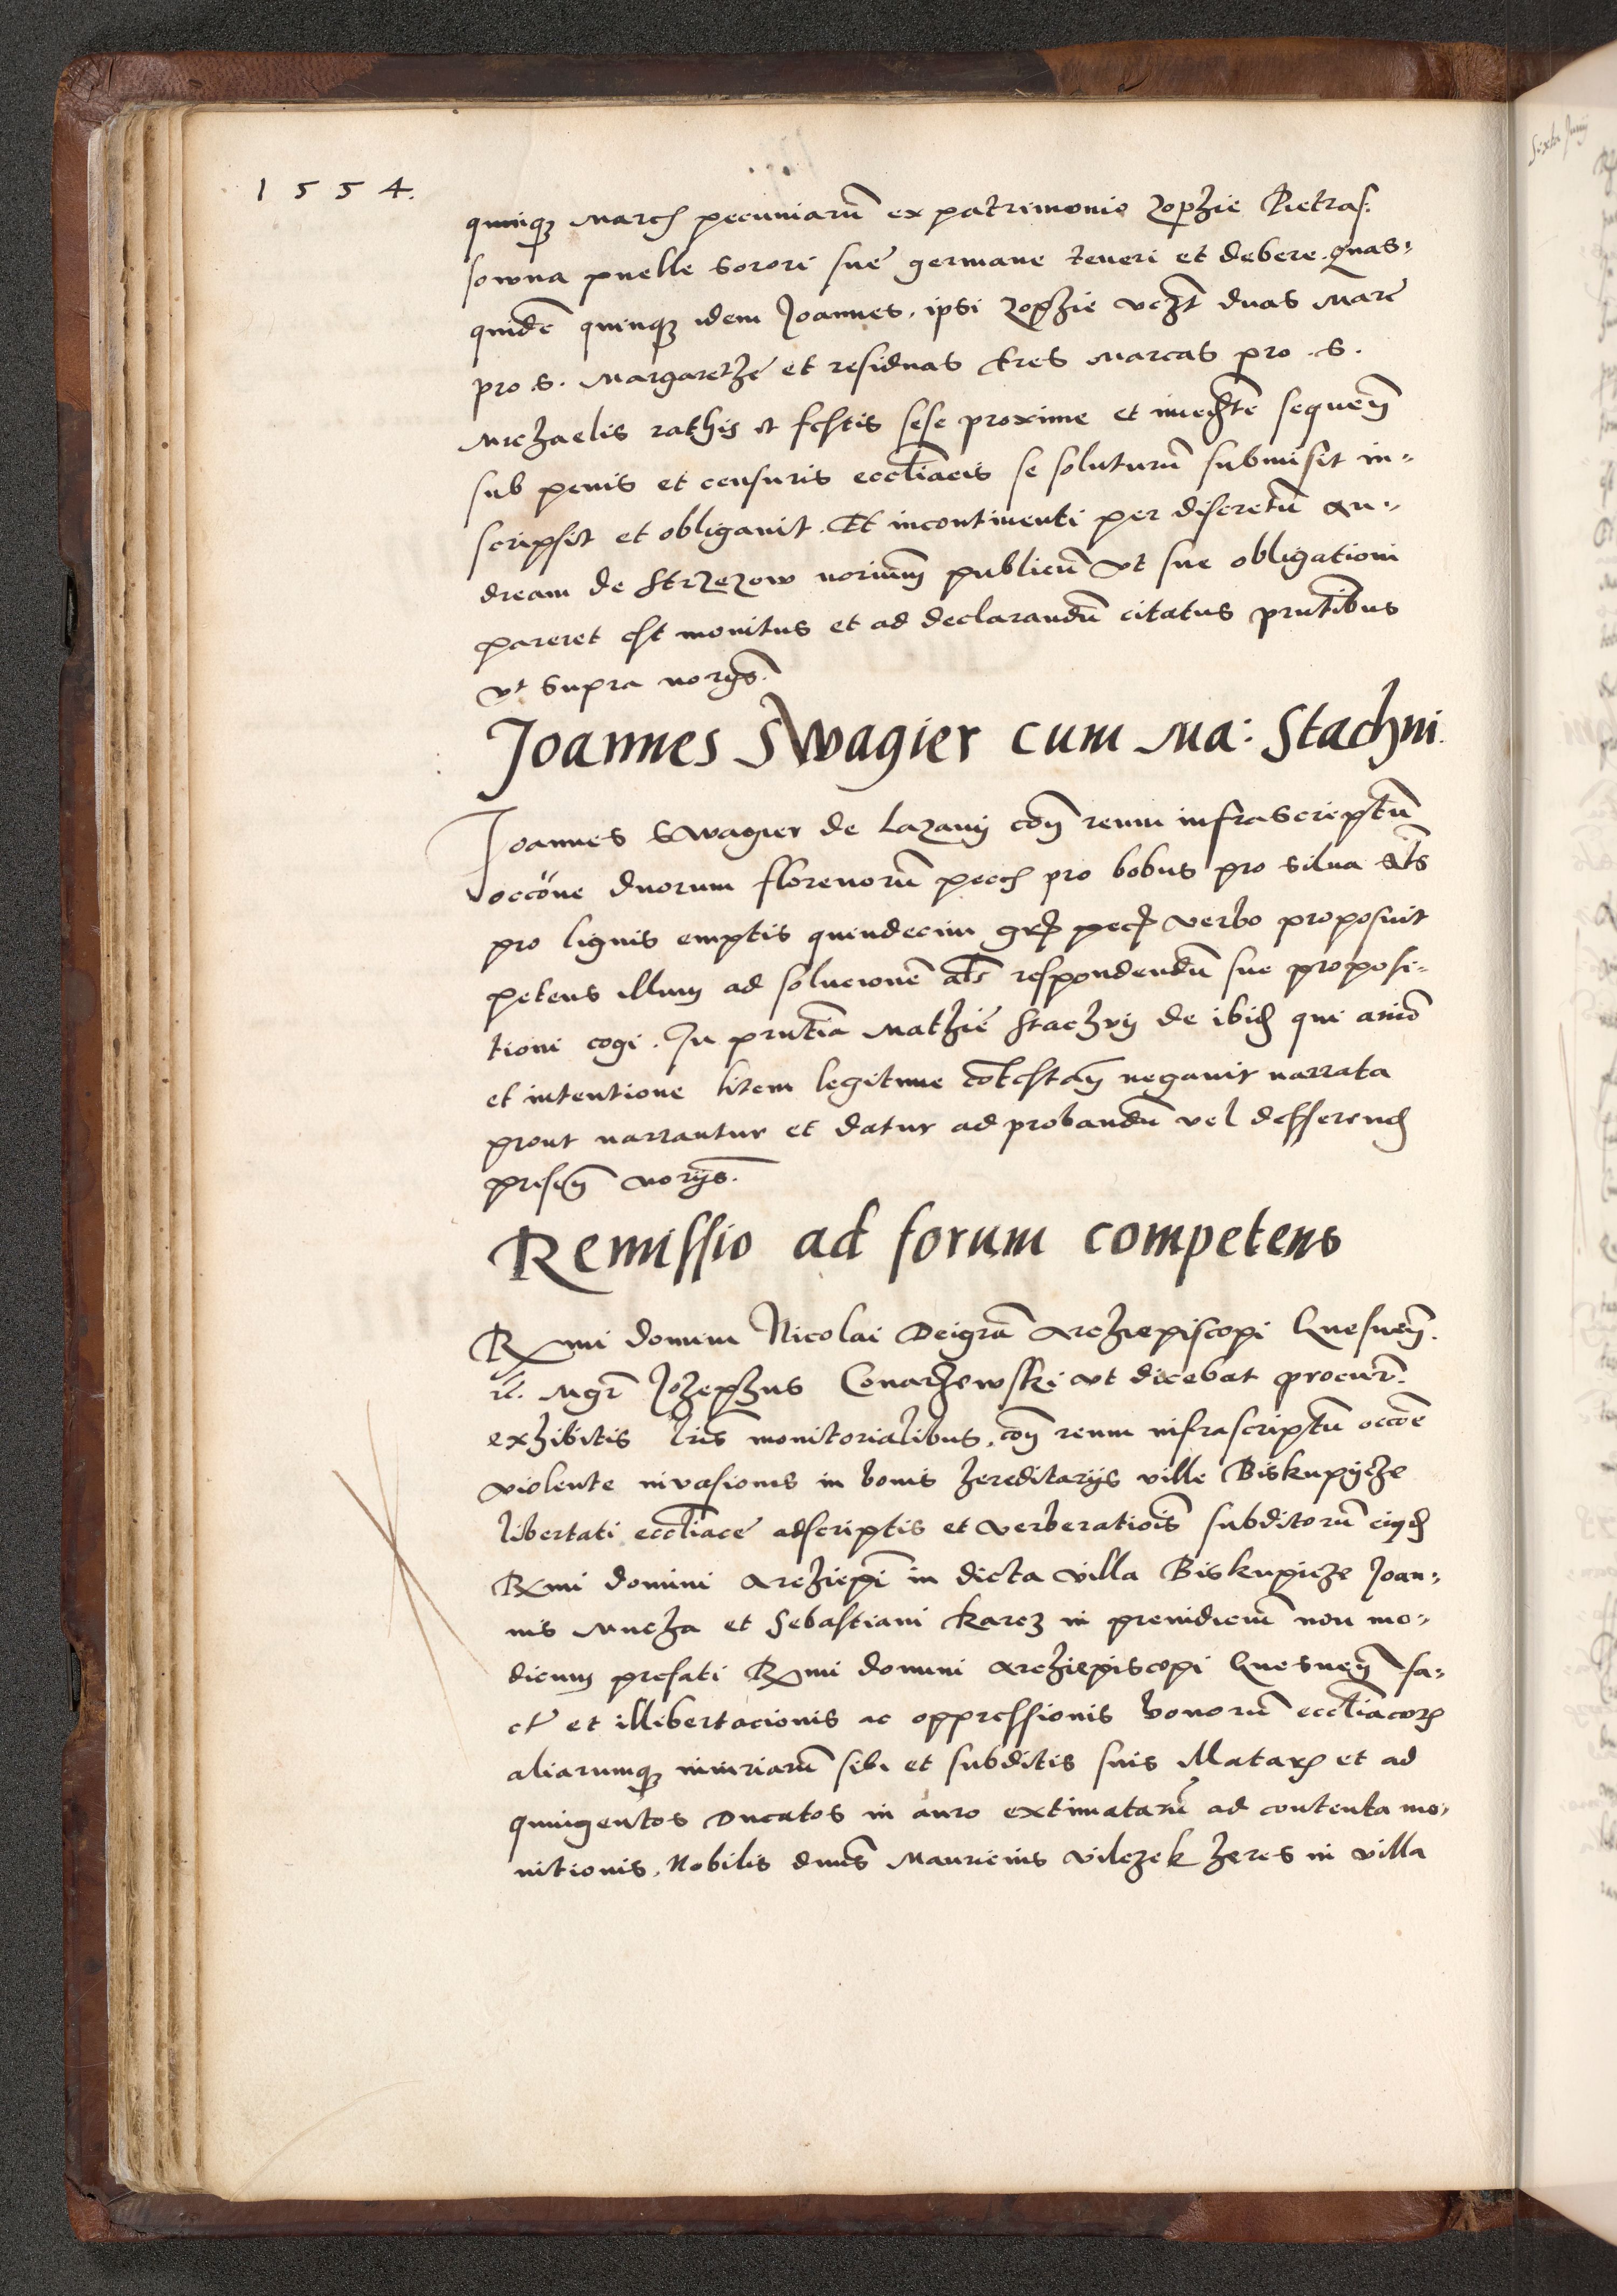 1554.
quinq3 march pecuniarū ex patrimonio Zophie Pietras:
sowna puelle sorori sue germane teneri et debere. quas=
quidē quinq3 idem Joannes, ipsi Zophie vczt duas marc
pro .S. Margarethe et residuas tres marcas pro .S.
Michaelis rathis et festis sese proxime et immedte sequeñ
sub penis et censuris eccliacis se soluturū submisit in=
scripsit et obligavit. Et incontinenti per discretū An=
dream de Strzezow norium publicū vt sue obligationi
pareret est monitus et ad declarandū citatus pntibus
vt supra norijs.
Joannes Swagier cum Ma: Stachni.
Joannes Swagier de Lazany coñ reum infrascriptum
occōne duorum florenorū pecch pro bobus pro silua als
pro lignis emptis quindecim gr pecc verbo proposuit
petens illum ad solucionē als respondendū sue proposi=
tioni cogi. In pntia Mathie Stachnij de ibid qui animo
et intentione litem legitime cotestañ negauit narrata
prout narrantur et datur ad probandū vel defferend
preseñ norijs.
Remissio ad forum competens
Rmi domini Nicolai Deigra Archiepiscopi Gnesneñ.
etc. Mgr Josephus Conarzewski vt dicebat procur.
exhibitis lris monitorialibus, coñ reum infrascriptū occōe
violente invasionis in bonis hereditarijs ville Biskupycze
libertati eccliace adscriptis et verberatiois subditorū eiusd
Rmi domini Archiepi in dicta villa Biskupicze Joan=
nis Mucha et Sebastiani Karcz in preiudicium non mo=
dicum prefati Rmi domini Archiepiscopi Gnesneñ fa=
ct et illibertacionis ac oppressionis bonorū eccliacorum
aliarumq3 iniuriarū sibi et subditis suis illatarum et ad
quingentos Ducatos in auro extimatarū ad contenta mo=
nitionis, Nobilis dnus Mauricius Vilczek heres in villa